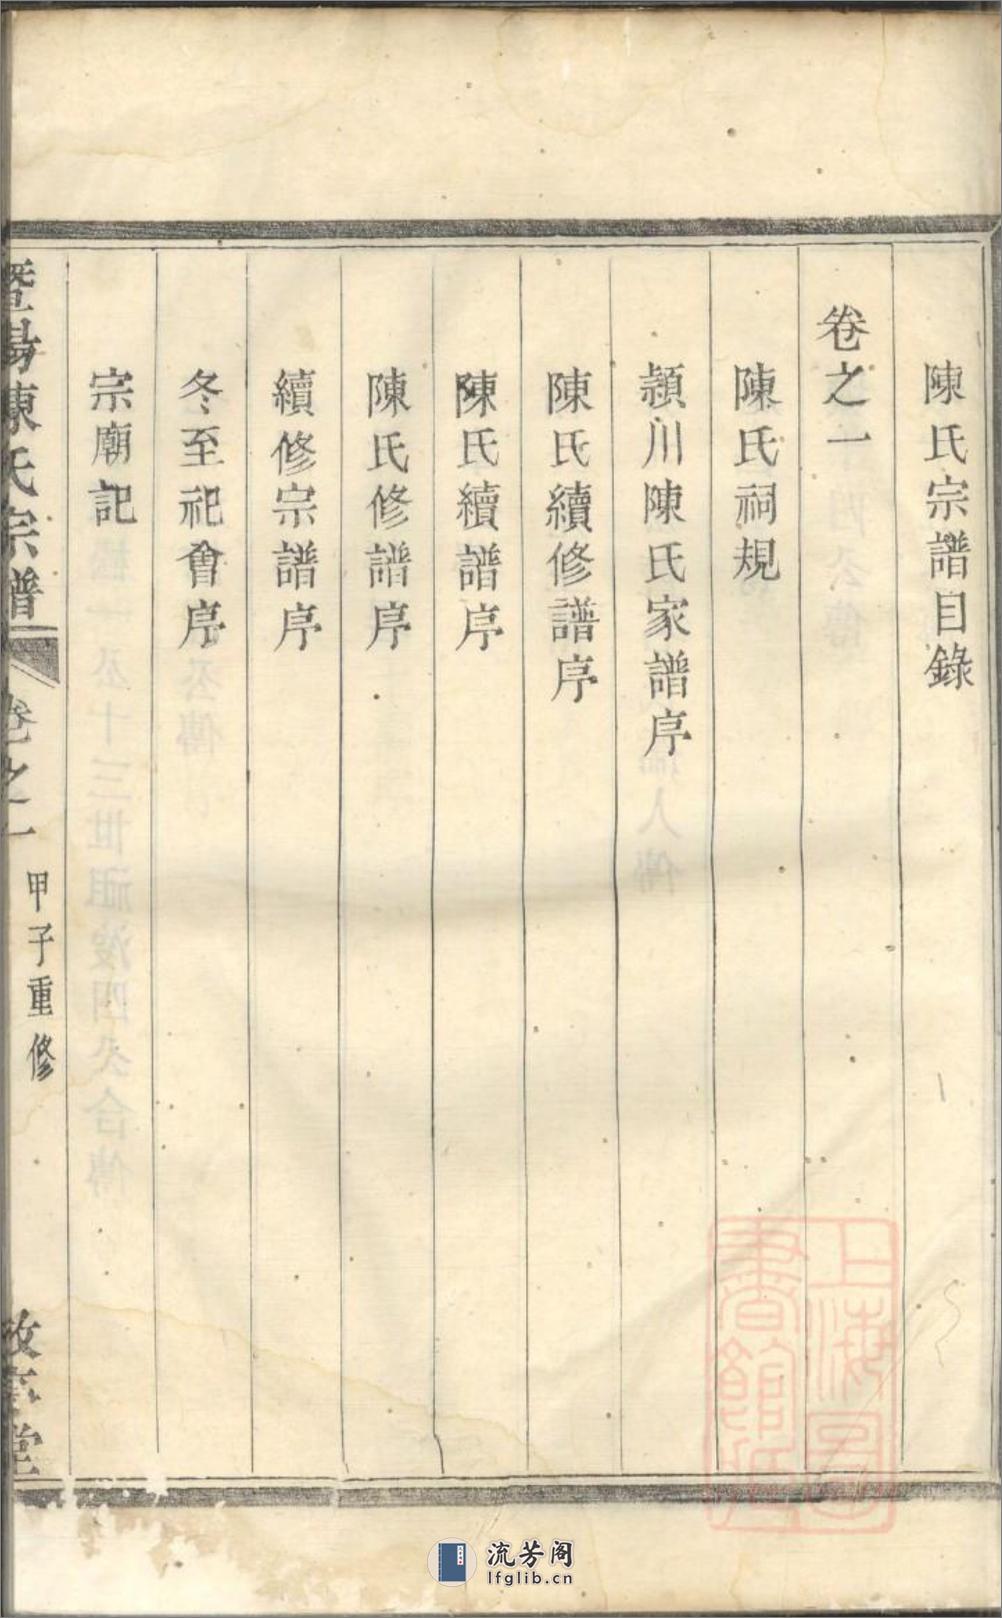 陳氏宗譜目錄
卷之一
陳氏祠規
穎川陳氏家譜序
陳氏續修譜序
陳氏續譜序
陳氏修譜序
續修宗譜序
冬至祀會序
宗廟記
暨陽陳氏宗譜
卷之一
甲子重修
堂
上海圖
書館藏
流芳阁
lfglib.cn